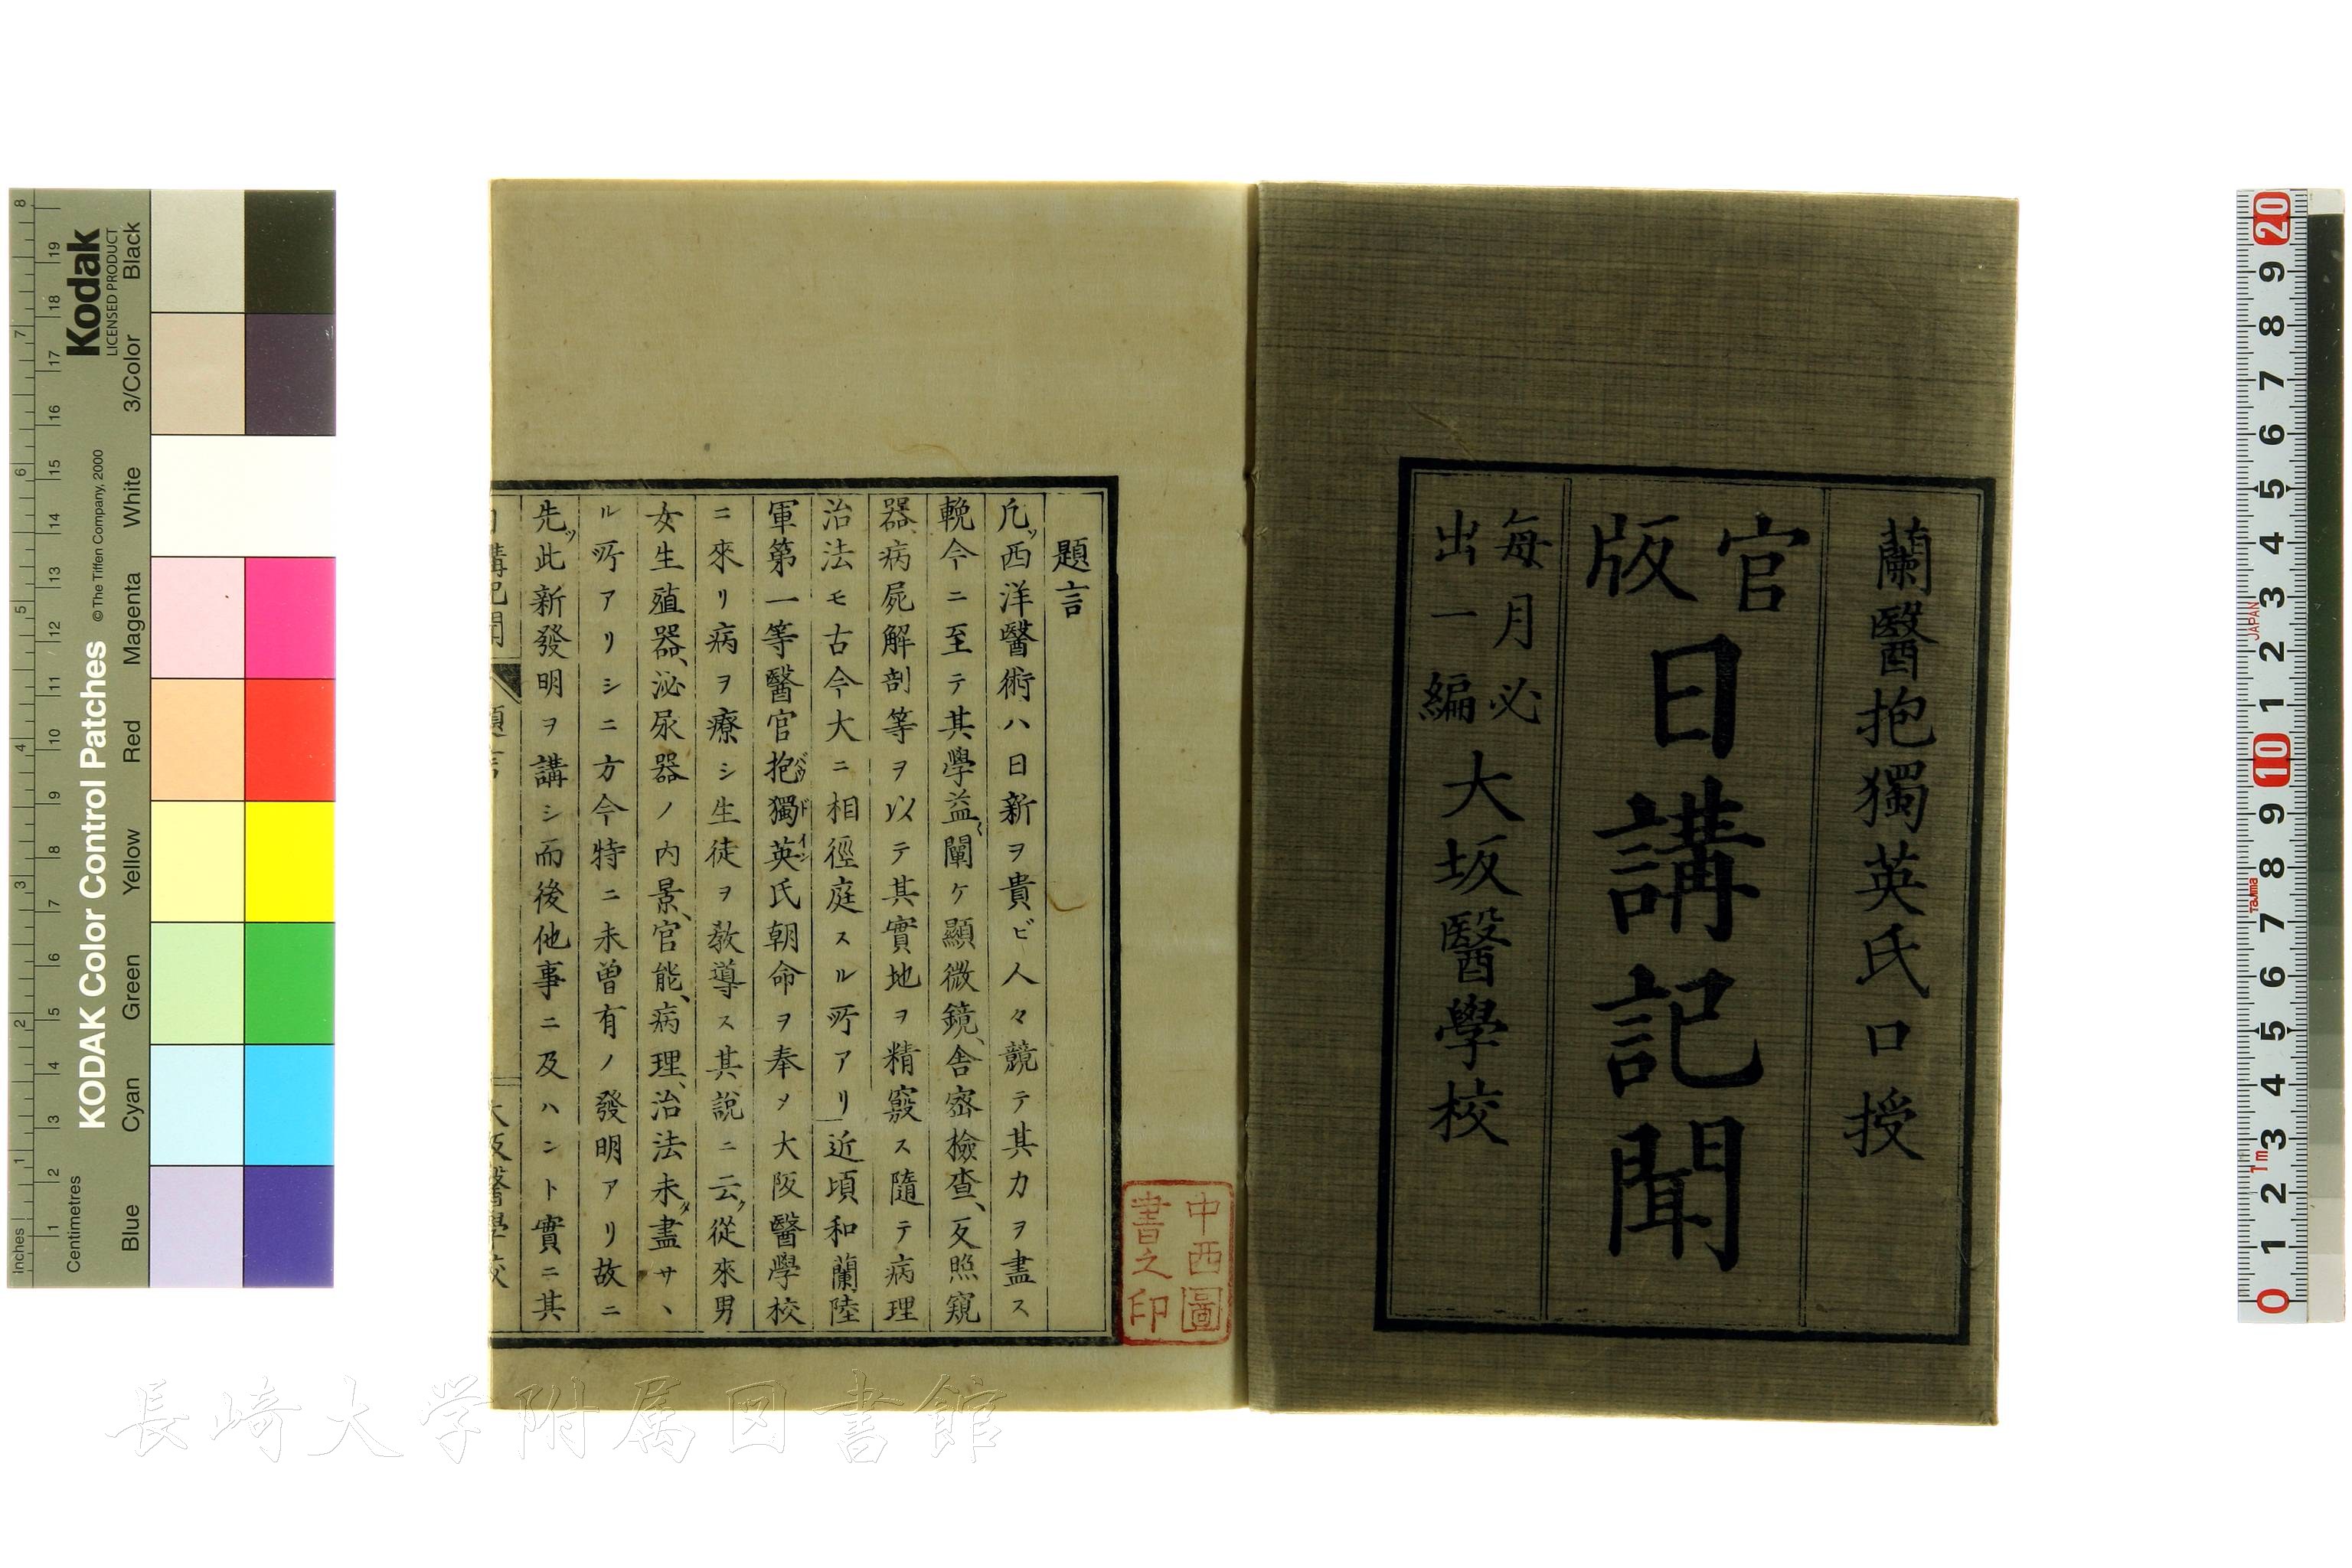 蘭醫抱獨英氏口授
官版
日講記聞
毎月必出一編
大坂醫學校
題言
凡ッ西洋醫術ハ日新ヲ貴ビ人々競テ其力ヲ盡ス
輓今ニ至テ其學益〻闡ケ顯微鏡、舎密檢査、反照窺
器、病屍解剖等ヲ以テ其實地ヲ精竅ス隨テ病理
治法モ古今大ニ相徑庭スル所アリ」近頃和蘭陸
軍第一等醫官抱獨英氏朝命ヲ奉メ大阪醫學校
ニ來リ病ヲ療シ生徒ヲ敎導ス其説ニ云ク從來男
女生殖器、泌尿器ノ内景、官能、病理、治法未タ盡サヽ
ル所アリシニ方今特ニ未曽有ノ發明アリ故ニ
先ッ此新發明ヲ講シ而後他事ニ及ハント實ニ其
中西圖書之印
長崎大学附属図書館
Kodak
LICENSED PRODUCT
KODAK Color Control Patches
© The Tiffen Company, 2000
Inches
Centimetres
Blue Cyan Green Yellow Red Magenta White 3/Color Black
1 2 3 4 5 6 7 8
1 2 3 4 5 6 7 8 9 10 11 12 13 14 15 16 17 18 19
20 9 8 7 6 5 4 3 2 1 10 9 8 7 6 5 4 3 2 1 0
JAPAN
Tajima
1m